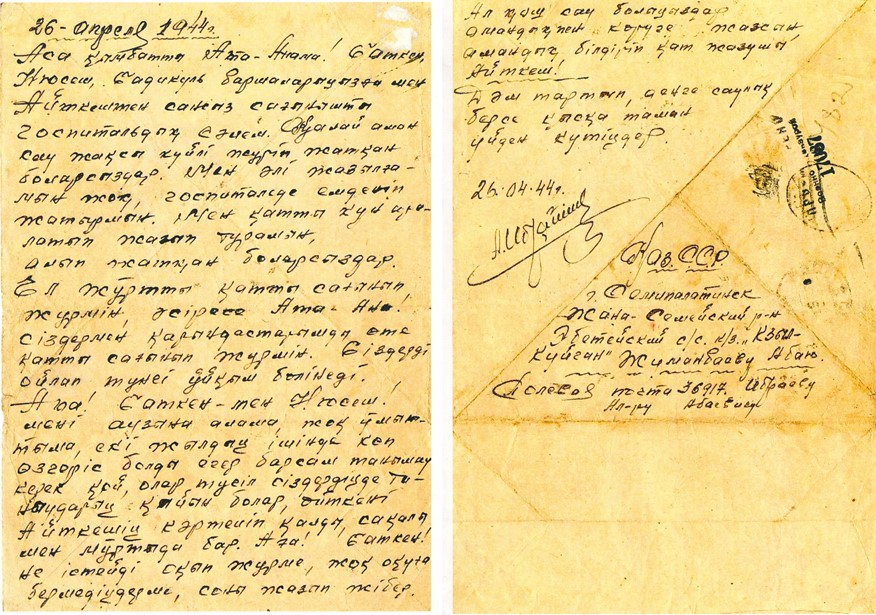 26-апреля 1944г.
Аса қымбатты Ата-Анама! Сәткен,
Күсеш, Садикуль баршаларыңызға мен
Айткештен сансыз сағынышты
госпитальдық сәлем. Қалай аман
сау жақсы күйлі жүріп жатқан
боларсыздар. Мен әлі жазылға-
мын жоқ, госпитальде емделіп
жатырмын. Мен қатты күй ара-
латып жазып тұрамын,
алып жатқан боларсыздар.
Ел жұртты қатты сағынып
жүрмін, әсіресе Ата-Ана!
сіздермен қарындастарымды өте
қатты сағынып жүрмін. Сіздерді
ойлап түнгі ұйқым бөлінеді.
Апа! Сәткен-мен Күсеш!
мені аузына алама, жоқ ұмыт-
тыма, екі жылдың ішінде көп
өзгеріс болды егер барсам танымау
керек қой, олар түсіл сіздердіңде та-
нуыларың қиын болар, өйткені
Айткешің кәртейіп қалды, сақалы
мен мұртыда бар. Апа! Сәткен!
не істейді оқып жүрме, жоқ оқуға
бермедіңдерме, соны жазып жібер.
Ал қош сау болыңыздар
амандықпен көруге жазсын,
амандық білдіріп қат жазушы
Айткеш!
Дәм тартып, денге саулық
берсе қысқа таман
үйден күтіңдер.
26.04.44г.
Каз.ССР
г. Семипалатинск
Жана-Семейский р-н
Абетейский с/с. к/з. „Кзыл-
куйган" Жиманбаеву Абаю.
Полевая почта 36917. Ибраеву
Ал-ру Абаевич